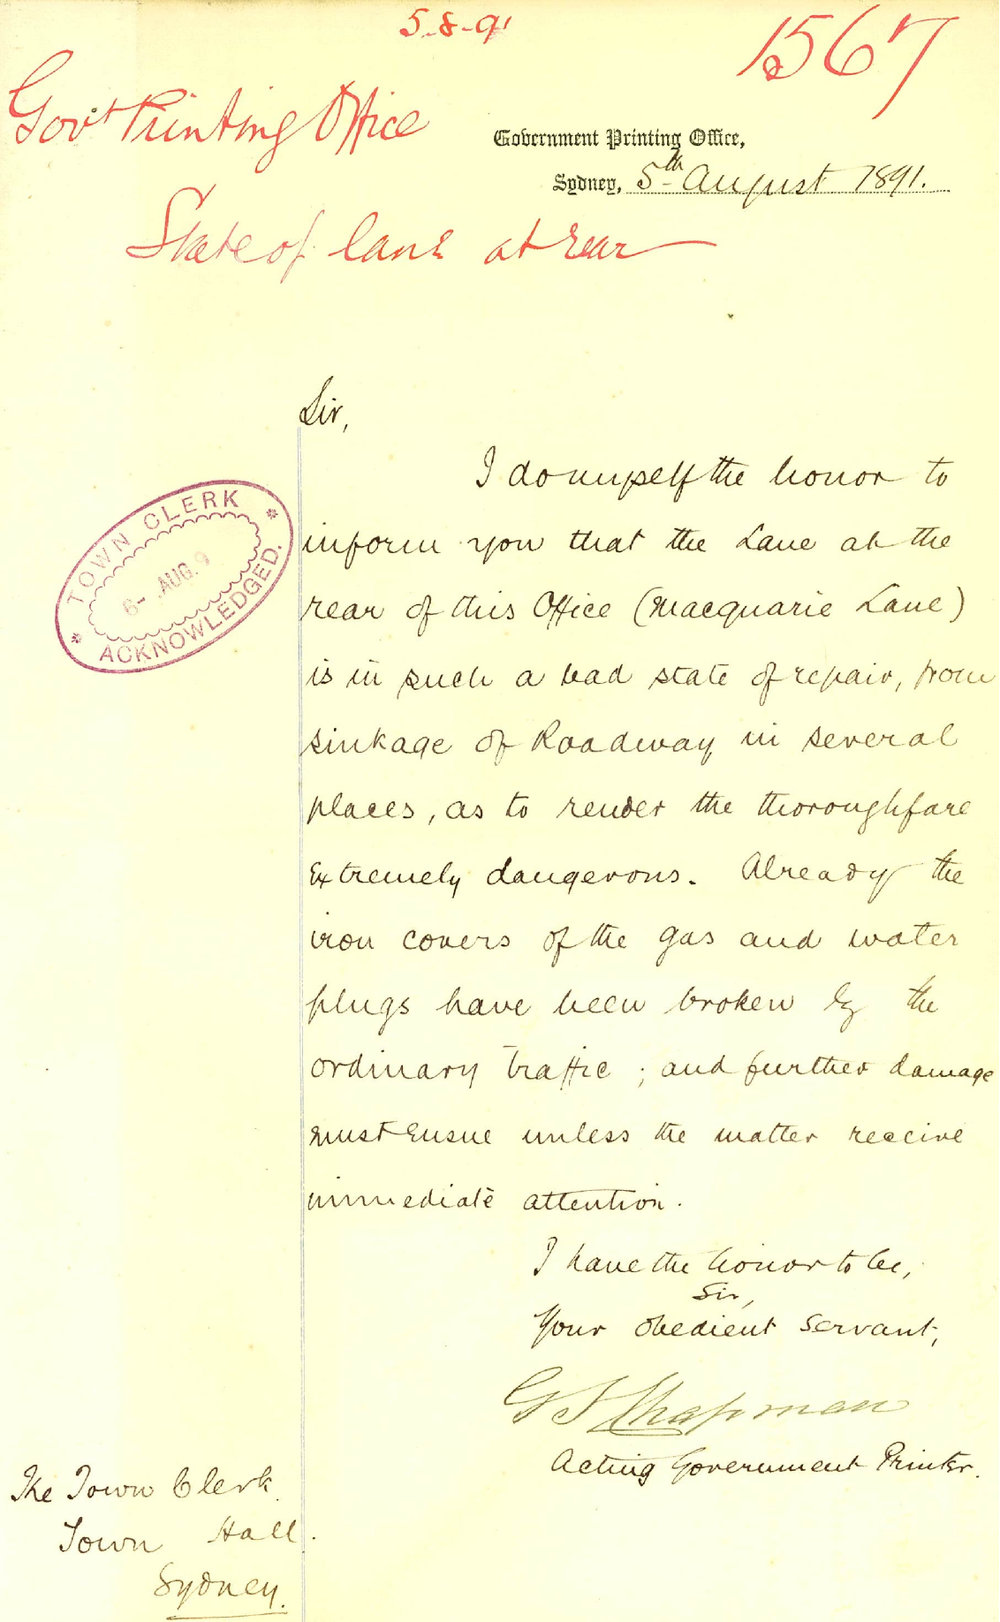 5-8-91
1567
Govt Printing Office
Government Printing Office,
Sydney, 5th August 1891.
State of lane at rear
Sir,
I do myself the honor to
inform you that the Lane at the
rear of this Office (Macquarie Lane)
is in such a bad state of repair, from
sinkage of Roadway in several
places, as to render the thoroughfare
extremely dangerous. Already the
iron covers of the gas and water
plugs have been broken by the
ordinary traffic; and further damage
must ensue unless the matter receive
immediate attention.
I have the honor to be,
Sir,
Your obedient servant,
G J Chapman
Acting Government Printer.
TOWN CLERK
6- AUG. 9
ACKNOWLEDGED.
The Town Clerk
Town Hall.
Sydney.